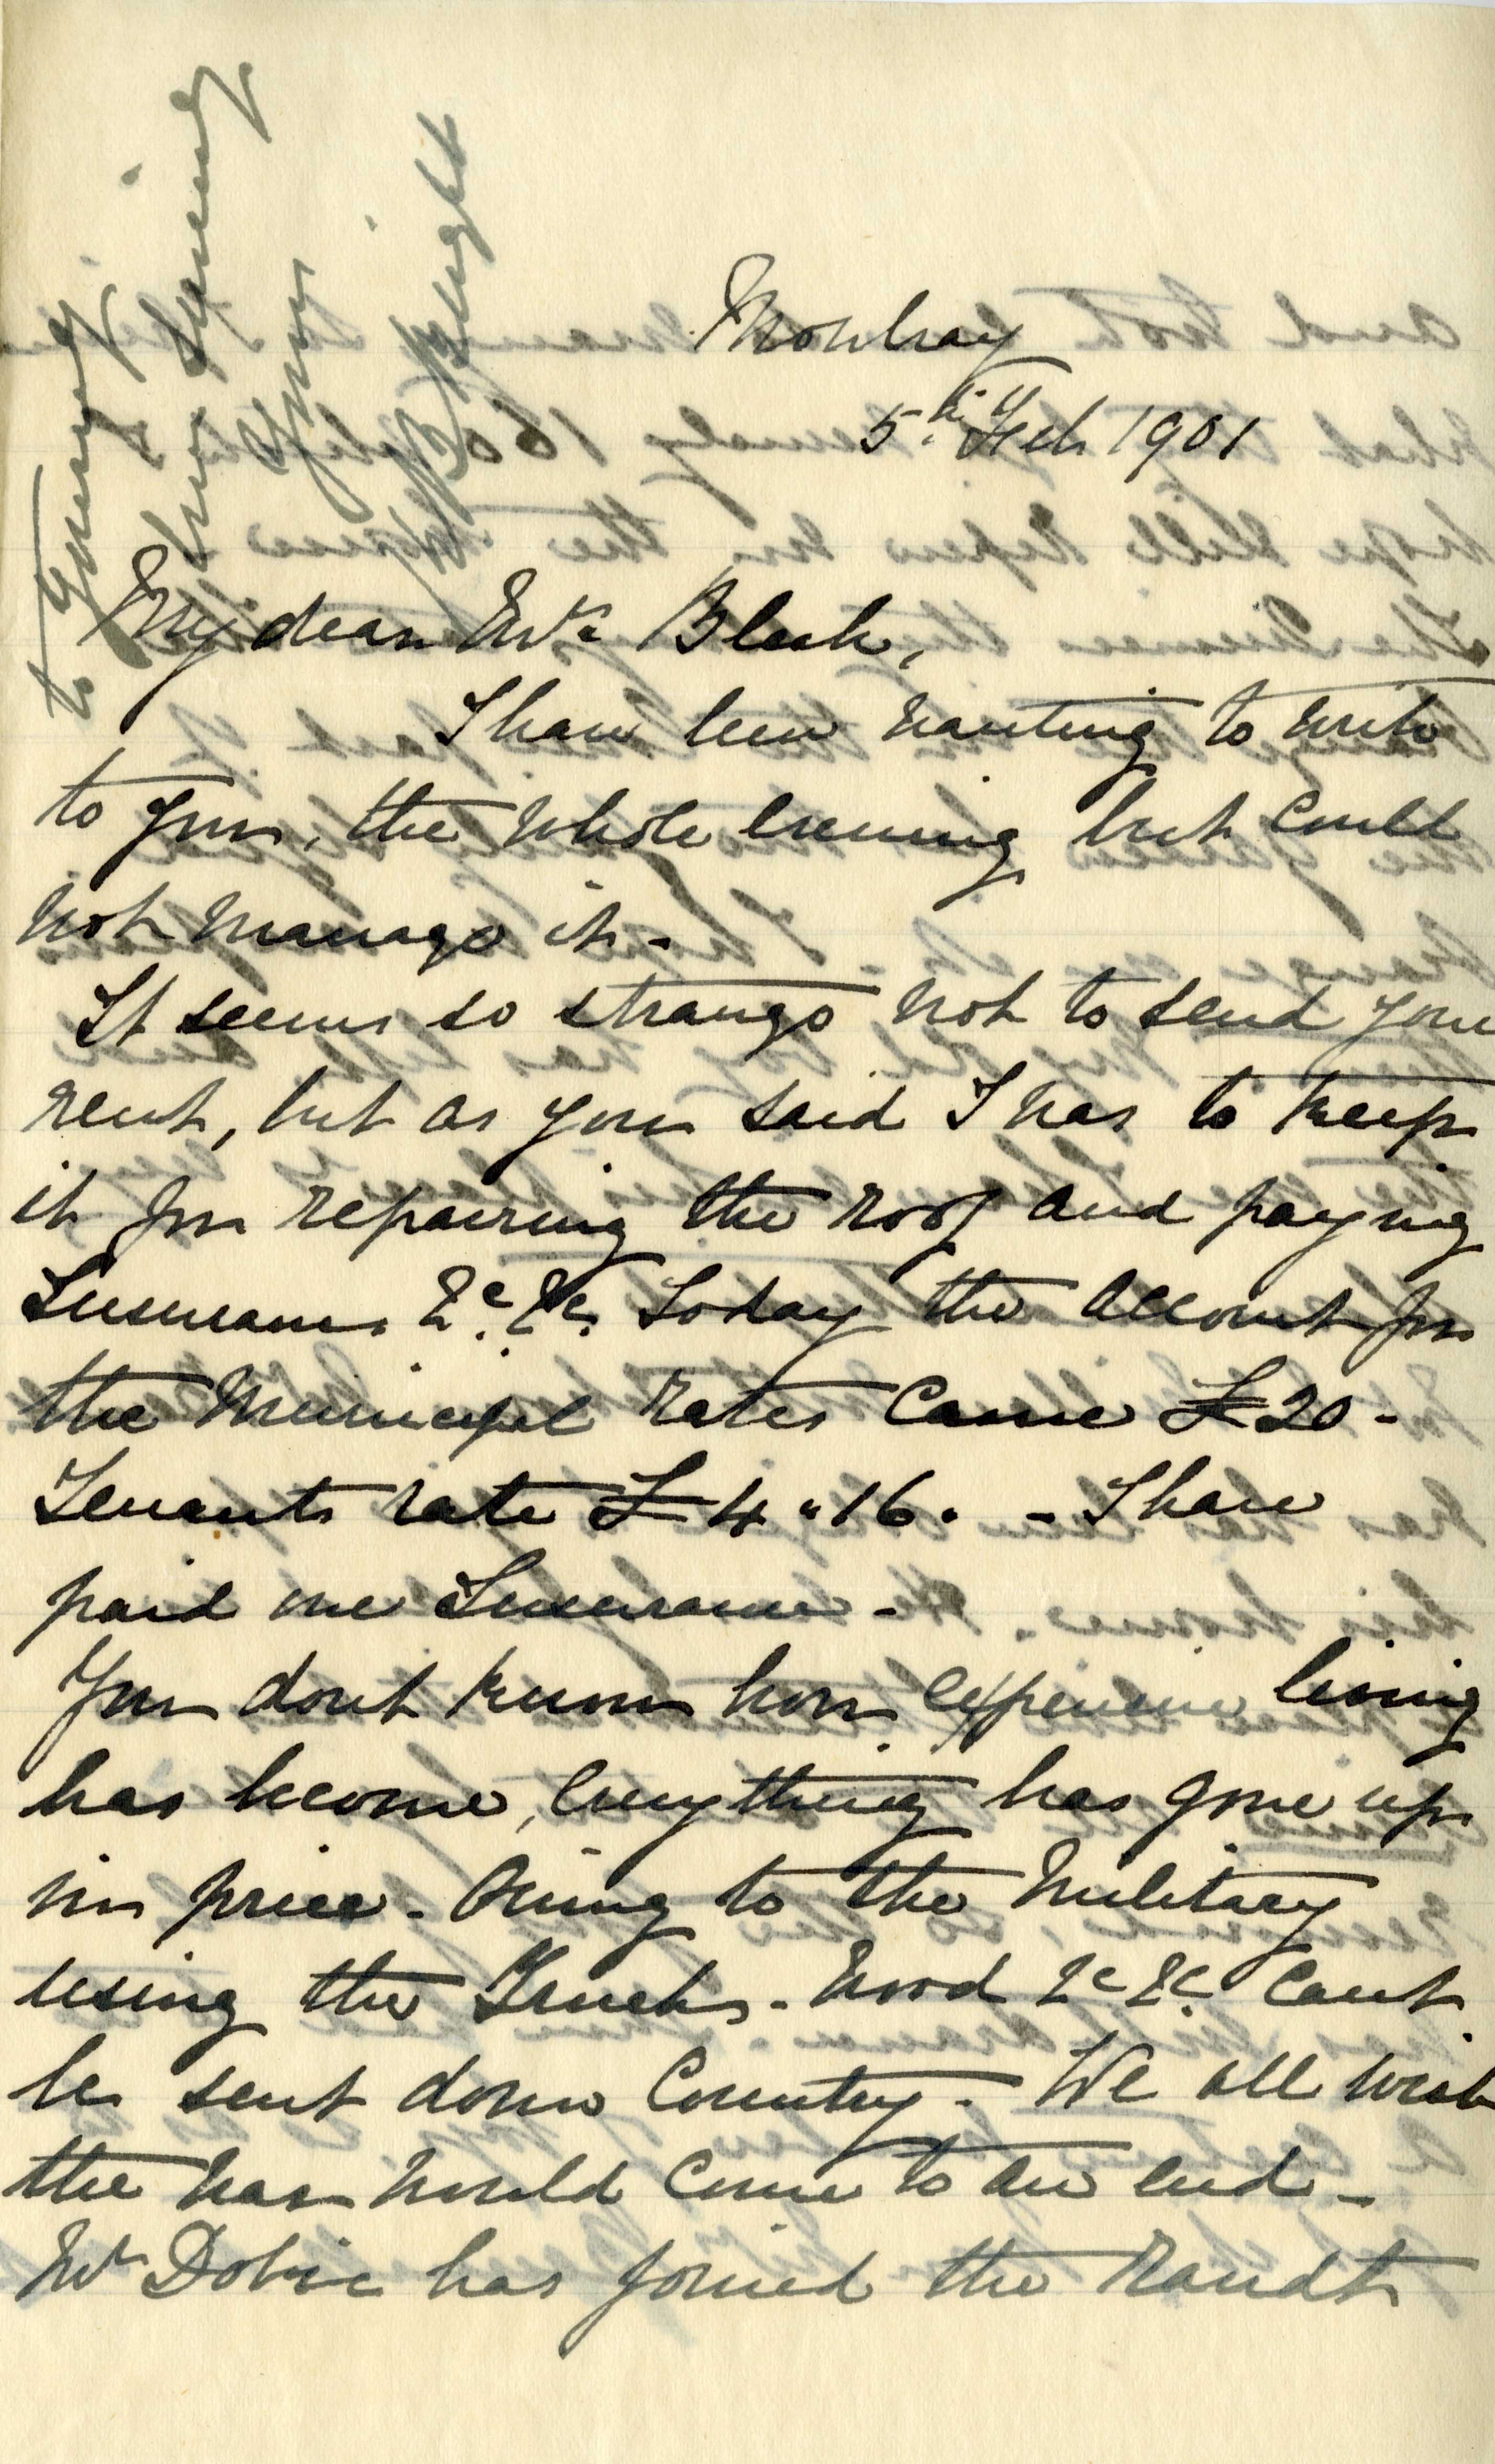 Mowbray
5th Feb 1901
My dear Mrs Bleek,
I have been wanting to write
to you, the whole evening but could
not manage it -
It seems so strange not to send you
rent, but as you said I was to keep
it for repairing the roof and paying
Insurance &c. &c. Today the account for
the Municipal rates came £20 -
Tenants rate £4 " 16 . - I have
paid one Insurance -
You dont know how expensive living
has become, everything has gone up
in price - Owing to the Military
using the Trucks - wood &c &c. cant
be sent down Country - We all wish
the war would come to an end -
Mr Dobie has joined the Randt
to
yours
your
Wright